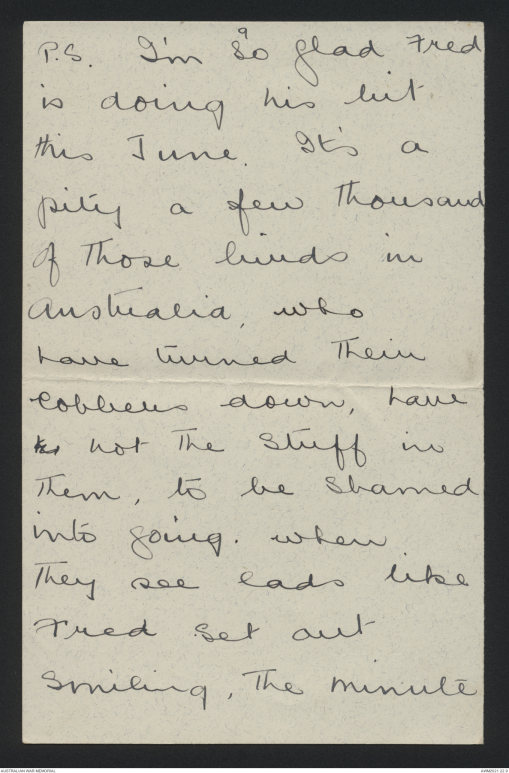 P.S. I'm so glad Fred
is doing his bit
this June. It's a
pity a few thousand
of those hinds in
Australia, who
have turned their
cobbers down, have
not the stuff in
them, to be shamed
into going. when
they see lads like
Fred set out
smiling, the minute
AUSTRALIAN WAR MEMORIAL